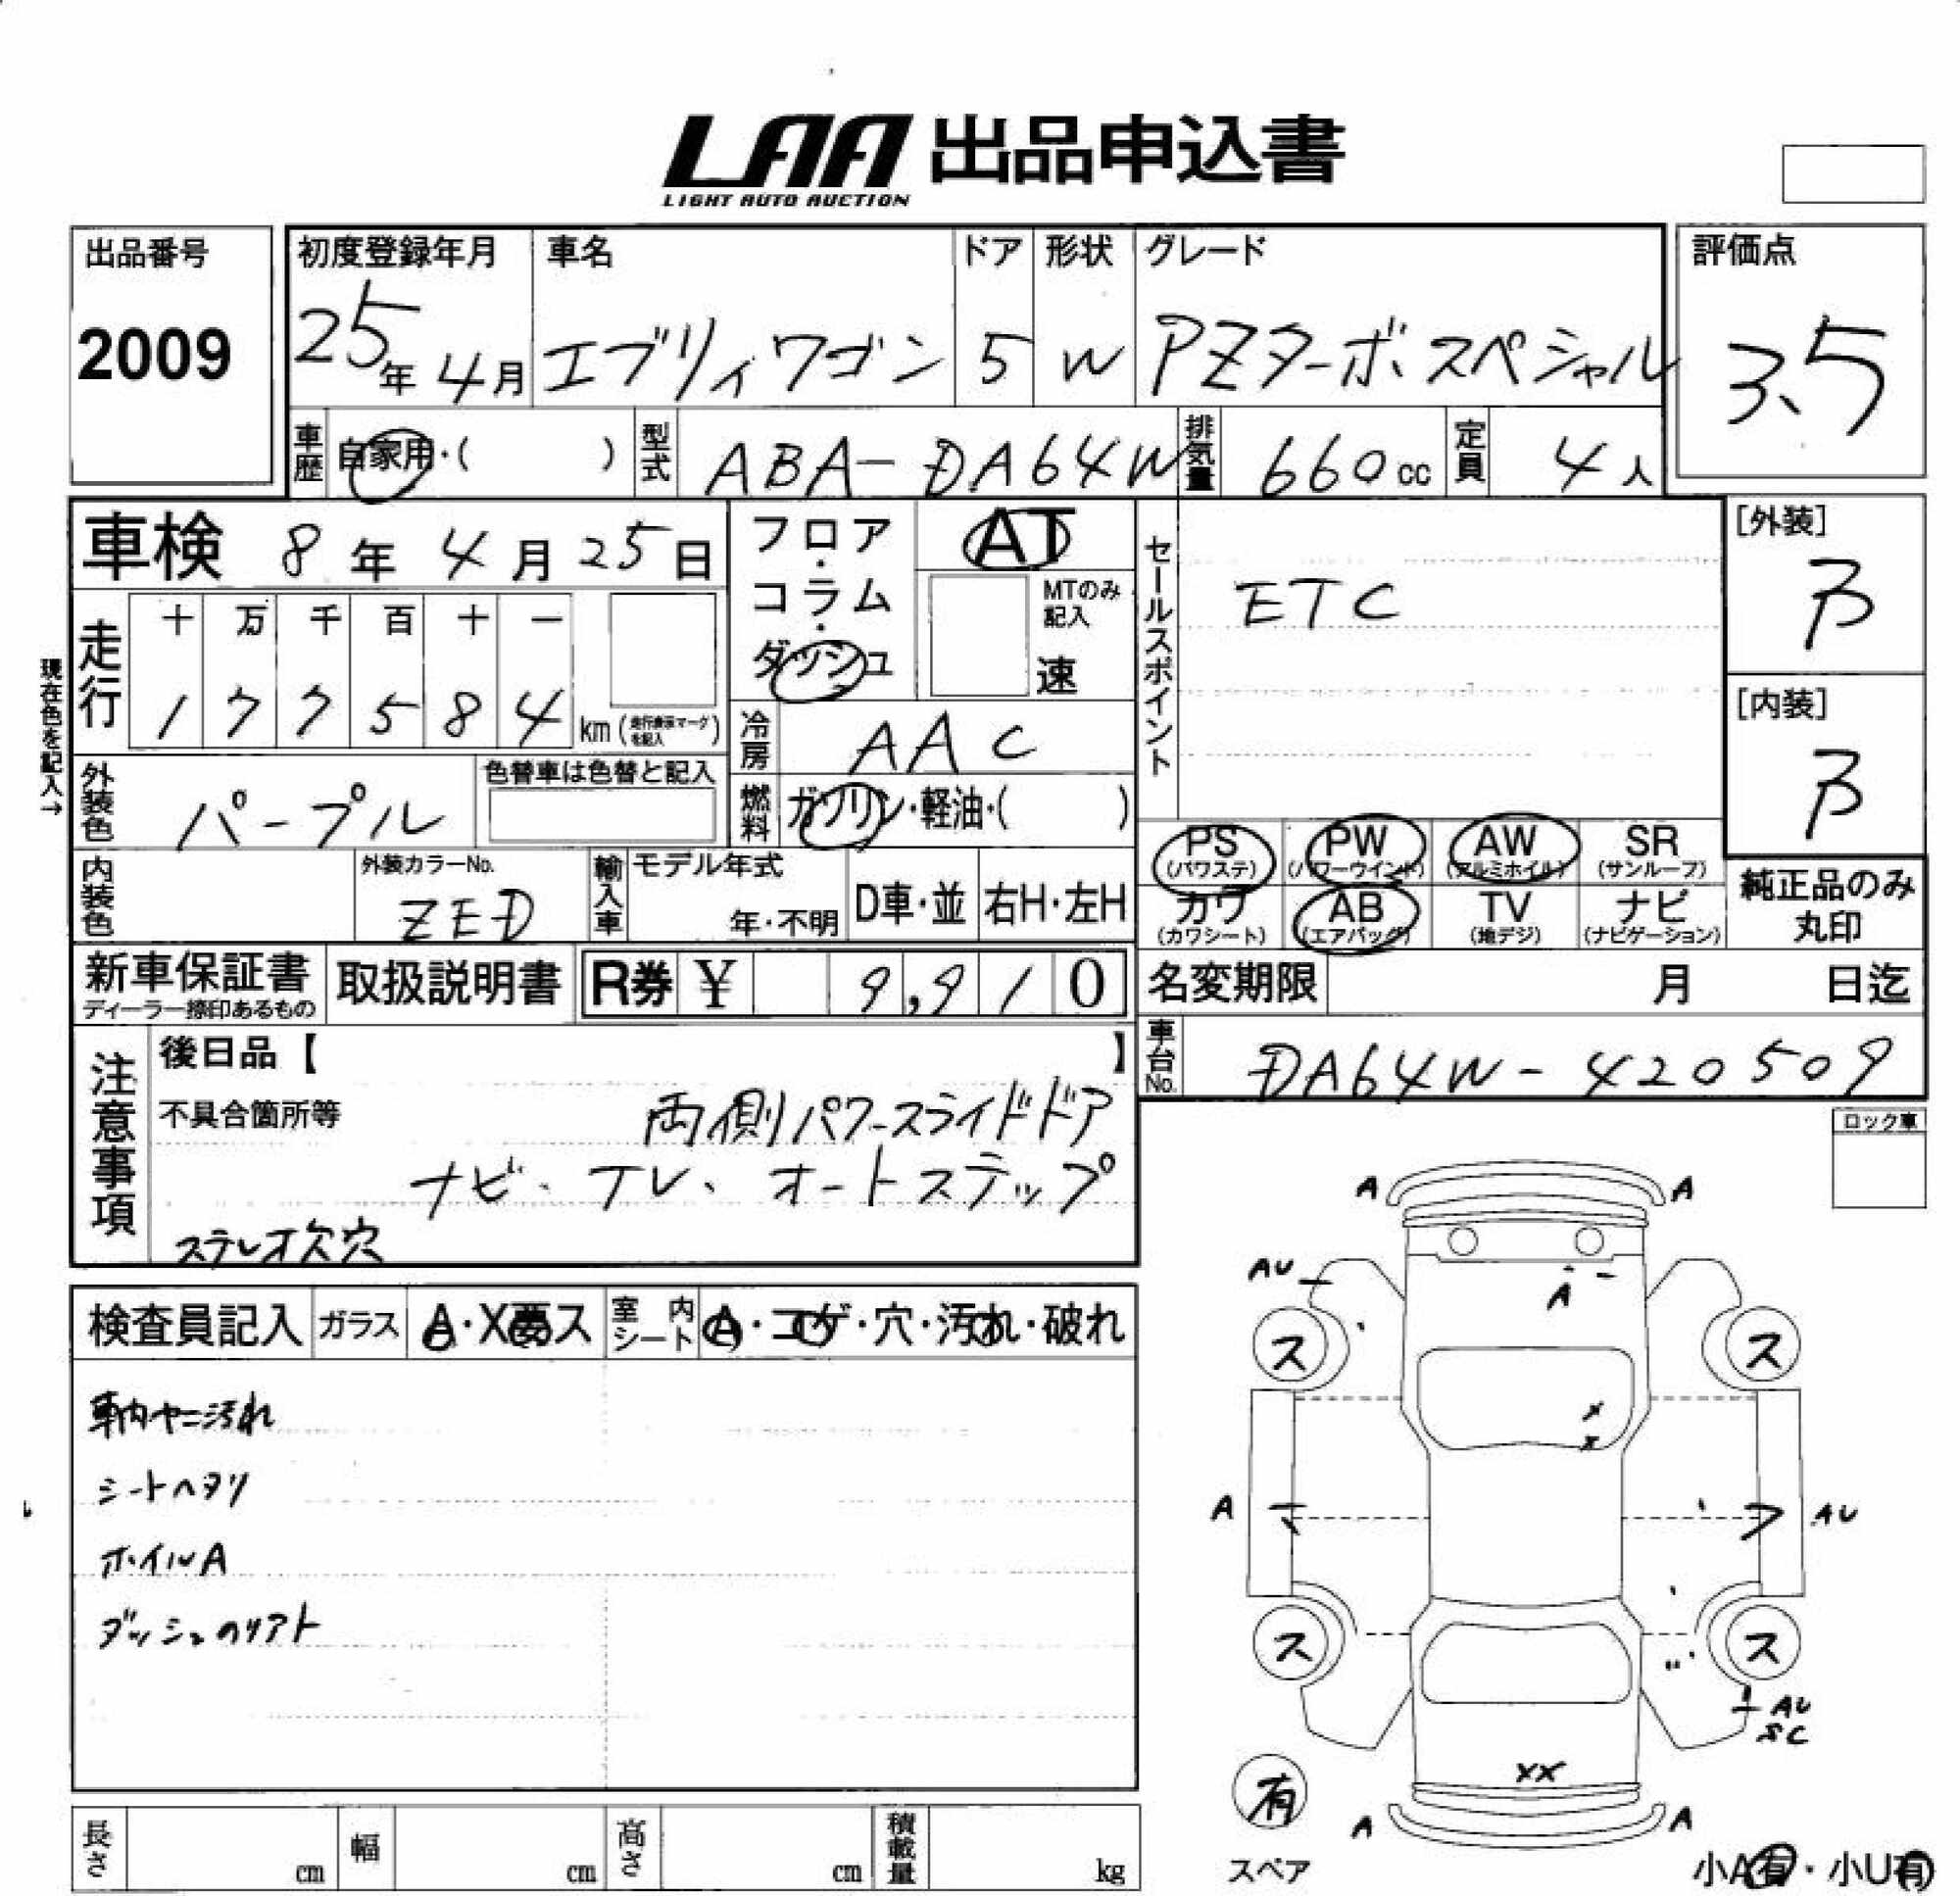 LAA 出品申込書
LIGHT AUTO AUCTION
出品番号
2009
初度登録年月
25年 4月
車名
エブリィワゴン
ドア
5
形状
W
グレード
PZターボスペシャル
評価点
3.5
車歴 自家用・( )
型式 ABA-DA64W
排気量 660cc
定員 4人
車検 8年 4月 25日
フロア・コラム・ダッシュ
AT
MTのみ記入
速
セールスポイント
ETC
[外装]
B
[内装]
B
現在色を記入→
走行
十 万 千 百 十 一
1 7 7 5 8 4 km(走行表示マークを記入)
冷房 AAC
燃料 ガソリン・軽油・( )
外装色 パープル
色替車は色替と記入
内装色
外装カラーNo.
ZED
輸入車
モデル年式
年・不明
D車・並
右H・左H
PS (パワステ)
PW (パワーウインド)
AW (アルミホイル)
SR (サンルーフ)
カワ (カワシート)
AB (エアバッグ)
TV (地デジ)
ナビ (ナビゲーション)
純正品のみ
丸印
新車保証書
ディーラー捺印あるもの
取扱説明書
R券 ¥ 9,910
名変期限 月 日迄
車台No. DA64W-420509
注意事項
後日品【 】
不具合箇所等
両側パワースライドドア
ナビ、TV、オートステップ
ステレオ欠穴
ロック車
検査員記入
ガラス A・X・ス
室内シート A・コゲ・穴・汚れ・破れ
車内ヤニ汚れ
シートヘタリ
ホイルA
ダッシュのリアト
A A
AU
A
ス ス
X
X
A AU
ス ス
AU
SC
XX
A A
有
スペア
小A有・小U有
長さ cm
幅 cm
高さ cm
積載量 kg